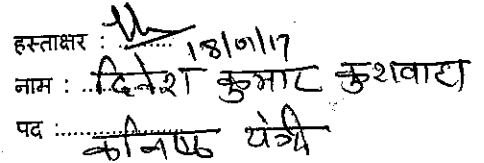 हस्ताक्षर : ......... 18/01/17
नाम : ..दिनेश कुमार कुशवाहा
पद :.................... कनिष्ठ यंत्री